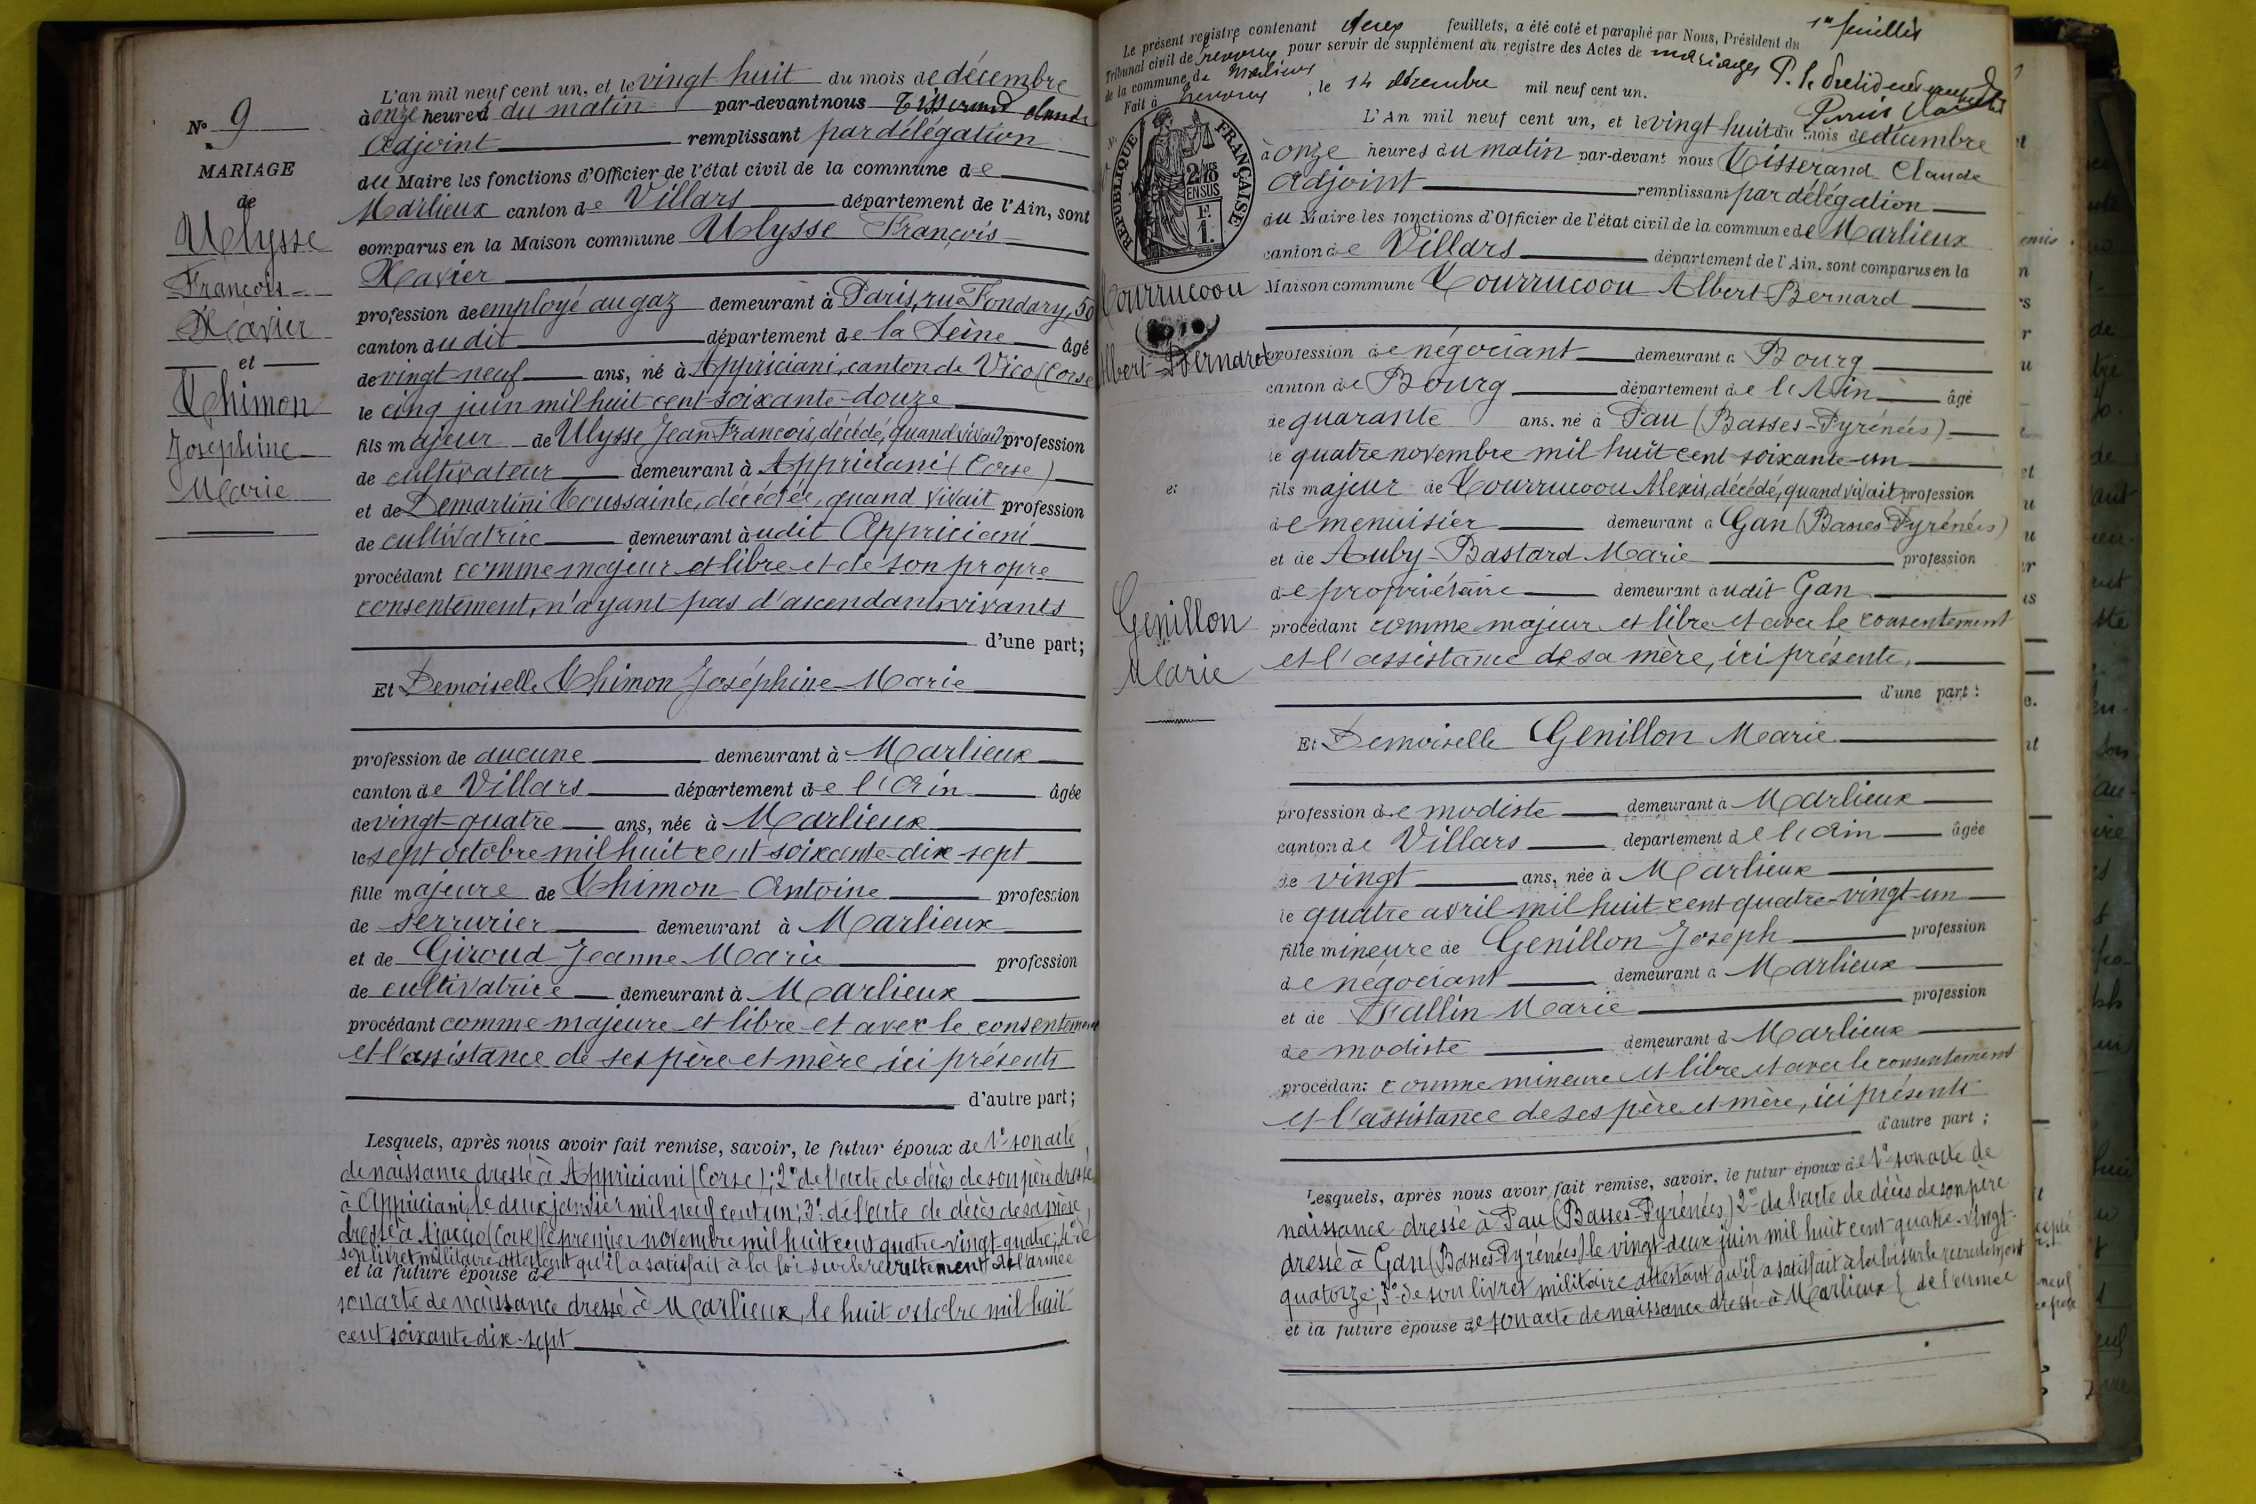 L'an mil neuf cent un, et le vingt huit du mois de décembre
N° 9
à onze heures du matin par-devant nous Tisserand Claude
Adjoint remplissant par délégation
MARIAGE
du Maire les fonctions d'Officier de l'état civil de la commune de
de
Marlieux canton de Villars département de l'Ain, sont
Ulysse
comparus en la Maison commune Ulysse François
François
Xavier
Xavier
profession de employé au gaz demeurant à Paris, rue Fondary, 50
canton dudit département de la Seine âgé
et
de vingt neuf ans, né à Appriciani, canton de Vico (Corse
Thimon
le cinq juin mil huit cent soixante-douze
Joséphine
fils majeur de Ulysse Jean François, décédé, quand vivait profession
de cultivateur demeurant à Appriciani (Corse)
Marie
et de Demartini Toussainte, décédée, quand vivait profession
de cultivatrice demeurant audit Appriciani
procédant comme majeur et libre et de son propre
consentement, n'ayant pas d'ascendants vivants
d'une part;
Et Demoiselle Thimon Joséphine Marie
profession de aucune demeurant à Marlieux
canton de Villars département de l'Ain âgée
de vingt-quatre ans, née à Marlieux
le sept octobre mil huit cent soixante-dix-sept
fille majeure de Thimon Antoine profession
de serrurier demeurant à Marlieux
et de Giroud Jeanne Marie profession
de cultivatrice demeurant à Marlieux
procédant comme majeure et libre et avec le consentement
et l'assistance de ses père et mère, ici présents
d'autre part;
Lesquels, après nous avoir fait remise, savoir, le futur époux de 1° son acte
de naissance dressé à Appriciani (Corse); 2° de l'acte de décès de son père dressé
à Appriciani, le deux janvier mil neuf cent un; 3° de l'acte de décès de sa mère,
dressé à Ajaccio (Corse) le premier novembre mil huit cent quatre-vingt-quatre; 4° de
son livret militaire attestant qu'il a satisfait à la loi sur le recrutement de l'armée
et la future épouse de
son acte de naissance dressé à Marlieux, le huit octobre mil huit
cent soixante-dix-sept
1er feuillet
Le présent registre contenant deux feuillets, a été coté et paraphé par Nous, Président du
Tribunal civil de Trévoux pour servir de supplément au registre des Actes de mariages
de la commune de Marlieux
Fait à Trévoux, le 14 décembre mil neuf cent un.
RÉPUBLIQUE FRANÇAISE
L'AN mil neuf cent un, et le vingt huit du mois de décembre
à onze heures du matin par-devant nous Tisserand Claude
Adjoint remplissant par délégation
du Maire les fonctions d'Officier de l'état civil de la commune de Marlieux
canton de Villars département de l'Ain, sont comparus en la
Tourrucoou
Maison commune Tourrucoou Albert Bernard
Albert-Bernard
profession de négociant demeurant à Bourg
canton de Bourg département de l'Ain âgé
de quarante ans, né à Pau (Basses-Pyrénées)
le quatre novembre mil huit cent soixante-un
et
fils majeur de Tourrucoou Alexis, décédé, quand vivait profession
de menuisier demeurant à Gan (Basses Pyrénées)
et de Auby-Bastard Marie profession
de propriétaire demeurant audit Gan
Genillon
procédant comme majeur et libre et avec le consentement
Marie
et l'assistance de sa mère, ici présente,
d'une part:
Et Demoiselle Genillon Marie
profession de modiste demeurant à Marlieux
canton de Villars département de l'Ain âgée
de vingt ans, née à Marlieux
le quatre avril mil huit cent quatre-vingt-un
fille mineure de Genillon Joseph profession
de négociant demeurant à Marlieux
et de Marie profession
de modiste demeurant à Marlieux
procédant comme mineure et libre et avec le consentement
et l'assistance de ses père et mère, ici présents
d'autre part;
Lesquels, après nous avoir fait remise, savoir, le futur époux de 1° son acte de
naissance dressé à Pau (Basses-Pyrénées) 2° de l'acte de décès de son père
dressé à Gan (Basses Pyrénées) le vingt-deux juin mil huit cent quatre-vingt-
quatorze; 3° de son livret militaire attestant qu'il a satisfait à la loi sur le recrutement
et la future épouse de son acte de naissance dressé à Marlieux { de l'armée